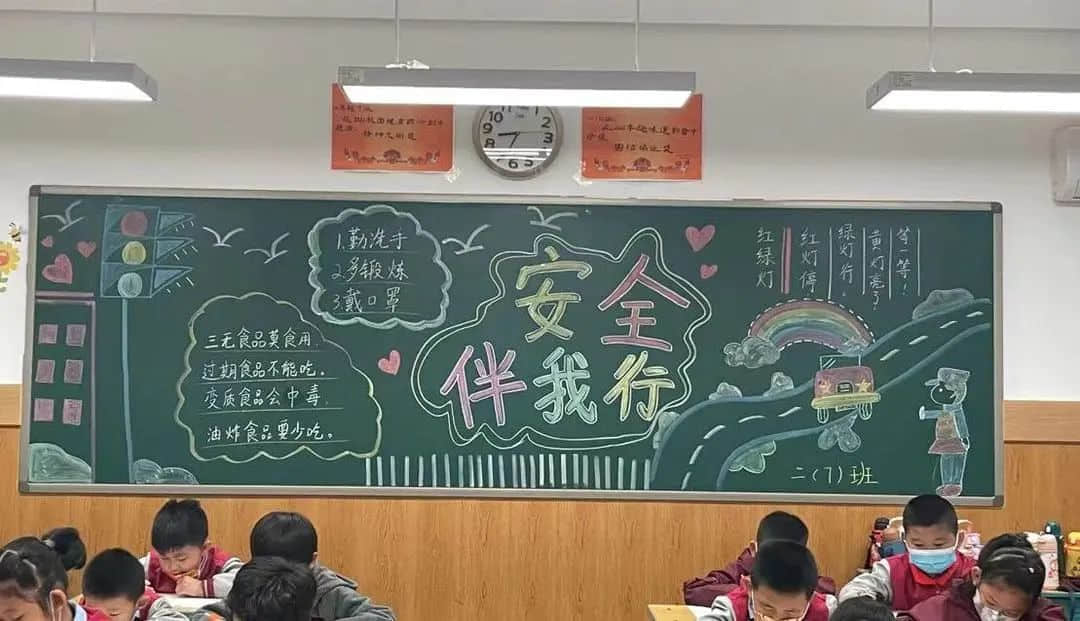 精神文明奖
团结协作奖
1.勤洗手
2.多锻炼
3.戴口罩
安全
伴我行
三无食品莫食用
过期食品不能吃。
变质食品会中毒
油炸食品要少吃。
红绿灯
红灯停
绿灯行。
黄灯亮了
等一等！
二（7）班